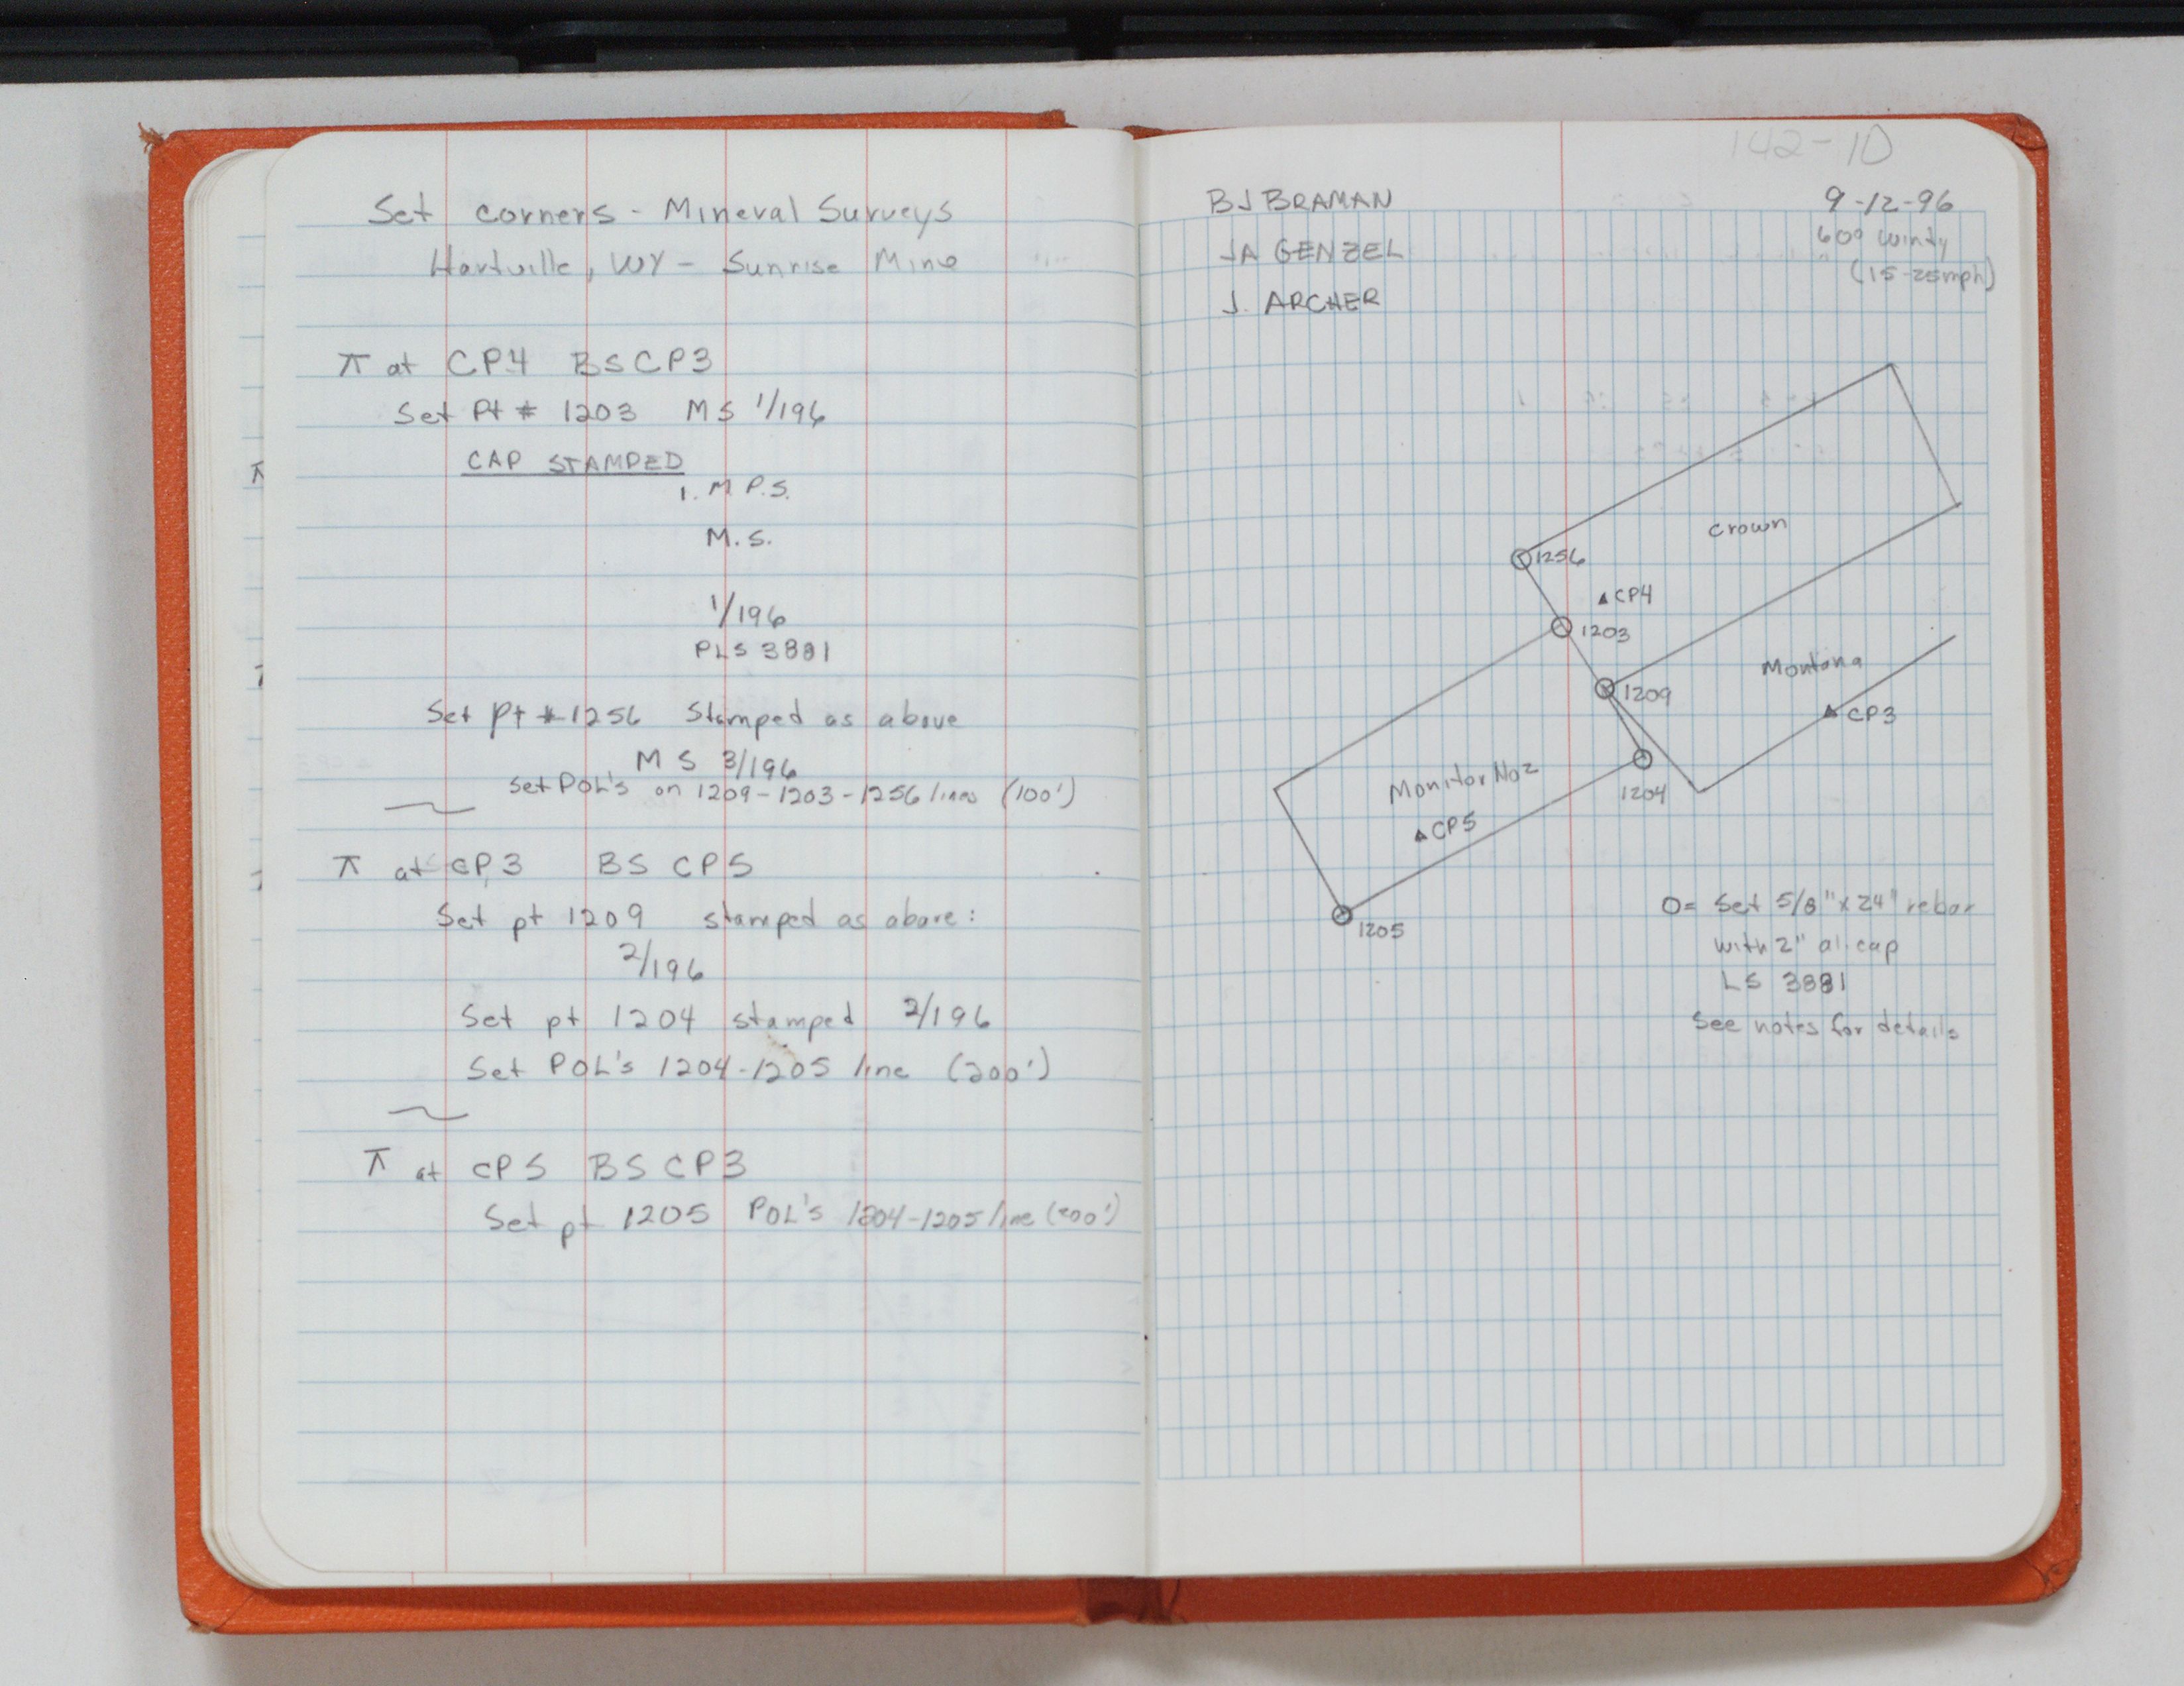 Set corners - Mineral Surveys
Hartville, WY - Sunrise Mine
π at CP4 BS CP3
Set Pt # 1203 MS 1/196
CAP STAMPED
1. M P.S.
M.S.
1/196
PLS 3881
Set pt # 1256 Stamped as above
M S 3/196
Set POL's on 1209-1203-1256 lines (100')
π at CP3 BS CP5
Set pt 1209 stamped as above:
2/196
Set pt 1204 stamped 2/196
Set POL's 1204-1205 line (200')
π at CP5 BS CP3
Set pt 1205 POL's 1204-1205 line (200')
142-10
BJ BRAMAN
JA GENZEL
J. ARCHER
9-12-96
60° Windy
(15-25mph)
Crown
1256
CP4
1203
Montana
1209
CP3
Monitor No2
1204
CP5
1205
O= Set 5/8" x 24" rebar
with 2" al. cap
LS 3881
See notes for details